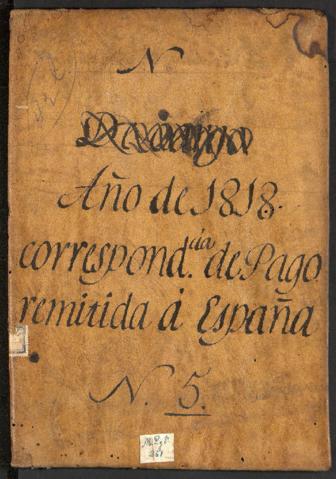 N
Año de 1818.
correspond.da de Pago
remitida á España
N. 5.